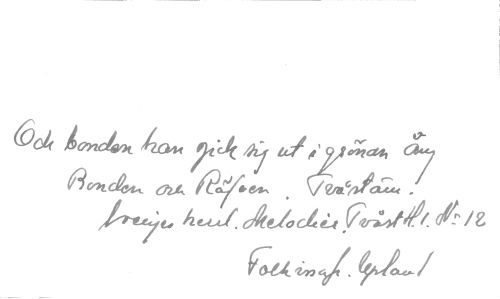 Och bonden han gick sig ut i grönan äng
Bonden och Räfven. Tvåstäm.
Sveriges herrl. Melodier, Tvåst H. 1. No 12
Folkvisa fr. Upland